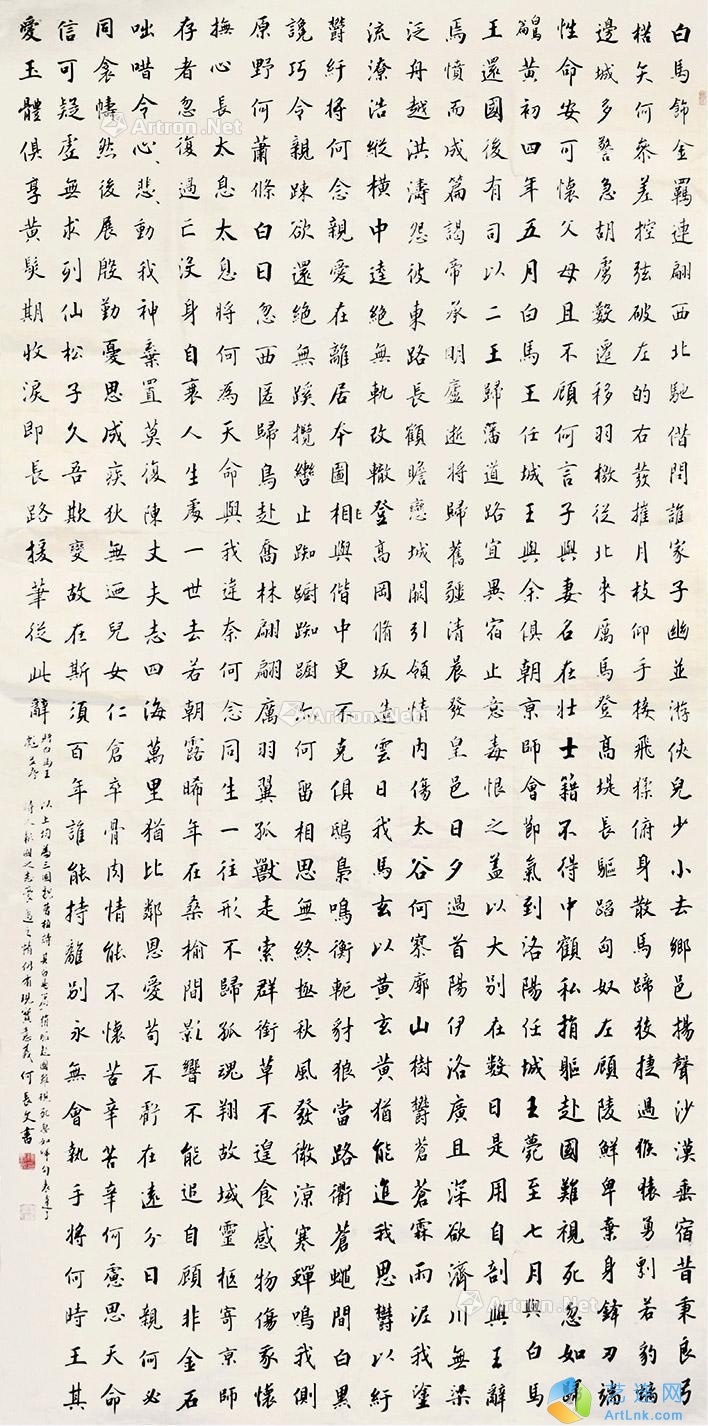 白馬飾金羈連翩西北馳借問誰家子幽並游俠兒少小去鄉邑揚聲沙漠垂宿昔秉良弓
楛矢何參差控弦破左的右發摧月枝仰手接飛猱俯身散馬蹄狡捷過猴猿勇剽若豹螭
邊城多警急胡虜數遷移羽檄從北來厲馬登高堤長驅蹈匈奴左顧陵鮮卑棄身鋒刃端
性命安可懷父母且不顧何言子與妻名在壯士籍不得中顧私捐軀赴國難視死忽如歸
黃初四年五月白馬王任城王與余俱朝京師會節氣到洛陽任城王薨至七月與白馬
王還國後有司以二王歸藩道路宜異宿止意毒恨之蓋以大別在數日是用自剖與王辭
焉憤而成篇謁帝承明廬逝將歸舊疆清晨發皇邑日夕過首陽伊洛廣且深欲濟川無梁
泛舟越洪濤怨彼東路長顧瞻戀城闕引領情內傷太谷何寥廓山樹鬱蒼蒼霖雨泥我塗
流潦浩縱橫中逵絕無軌改轍登高岡脩坂造雲日我馬玄以黃玄黃猶能進我思鬱以紆
鬱紆將何念親愛在離居本圖相與偕中更不克俱鴟梟鳴衡軛豺狼當路衢蒼蠅間白黑
讒巧令親踈欲還絕無蹊攬轡止踟躕踟躕亦何留相思無終極秋風發微涼寒蟬鳴我側
原野何蕭條白日忽西匿歸鳥赴喬林翩翩厲羽翼孤獸走索群銜草不遑食感物傷我懷
撫心長太息太息將何為天命與我違奈何念同生一往形不歸孤魂翔故域靈柩寄京師
存者忽復過亡沒身自衰人生處一世去若朝露晞年在桑榆間影響不能追自顧非金石
咄唶令心悲動我神棄置莫復陳丈夫志四海萬里猶比鄰恩愛苟不虧在遠分日親何必
同衾幬然後展殷勤憂思成疾無迺兒女仁倉卒骨肉情能不懷苦辛苦辛何慮思天命
信可疑虛無求列仙松子久吾欺變故在斯須百年誰能持離別永無會執手將何時王其
愛玉體俱享黃髮期收淚即長路援筆從此辭
贈白馬王
彪並序
以上均為三國
何長文書
Artron.Net
Artron.Net
Artron.Net
Artron.Net
艺迷网
ArtLnk.com